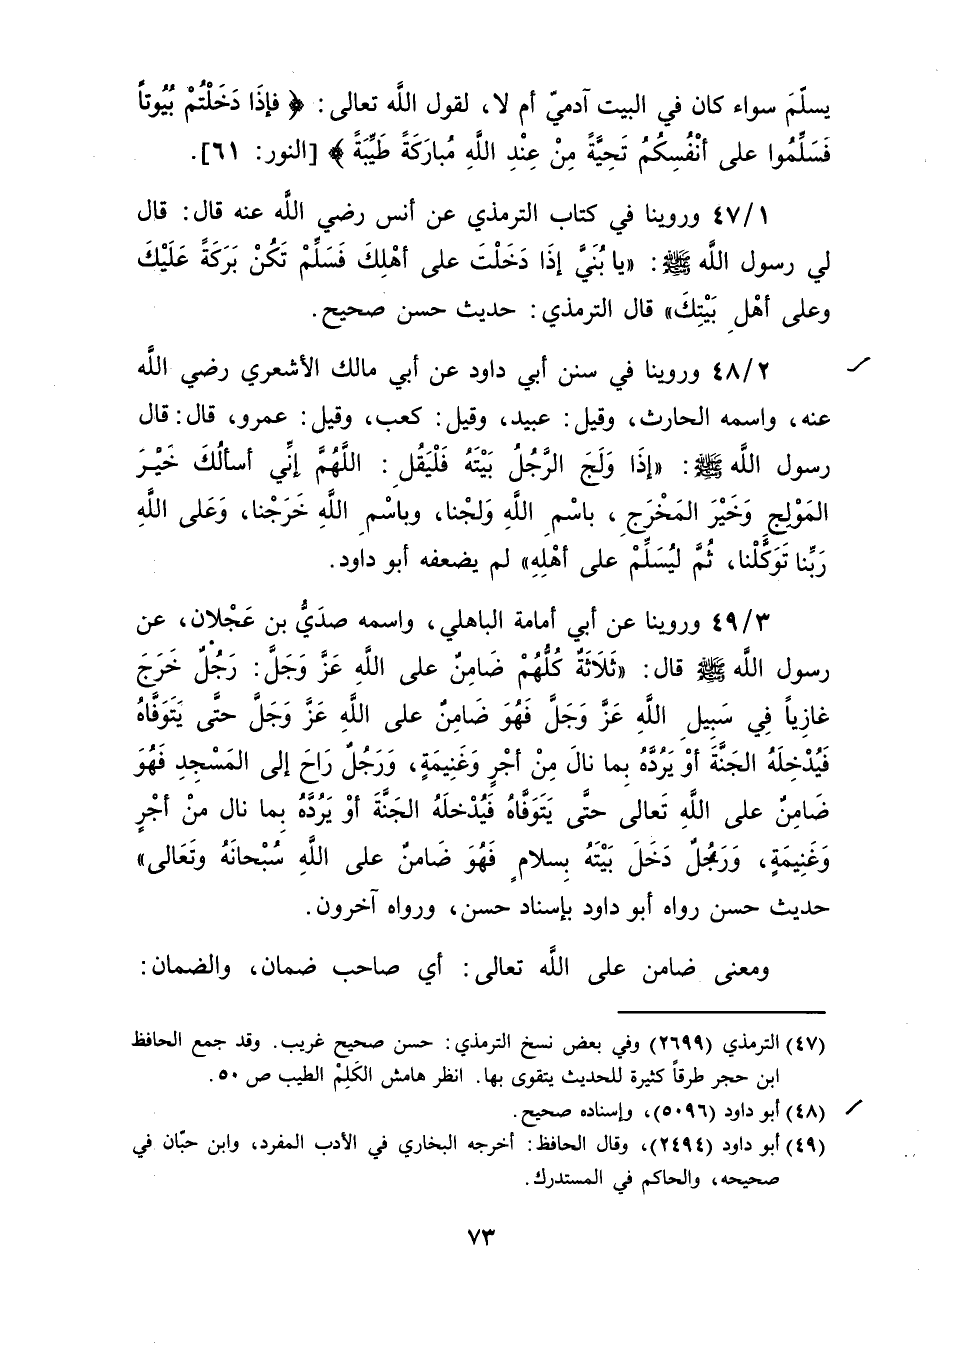 يسلّمَ سواء كان في البيت آدميّ أم لا، لقول اللَّه تعالى: ﴿ فإذَا دَخَلْتُمْ بُيُوتاً
فَسَلِّمُوا على أنْفُسِكُمُ تَحِيَّةً مِنْ عِنْدِ اللَّهِ مُبارَكَةً طَيِّبَةً ﴾ [النور: ٦١].
٤٧/١ وروينا في كتاب الترمذي عن أنس رضي اللَّه عنه قال: قال
لي رسول اللَّه ﷺ: «يا بُنَيَّ إذَا دَخَلْتَ على أهْلِكَ فَسَلِّمْ تَكُنْ بَرَكَةً عَلَيْكَ
وعلى أهْلِ بَيْتِكَ» قال الترمذي: حديث حسن صحيح.
٤٨/٢ وروينا في سنن أبي داود عن أبي مالك الأشعري رضي اللَّه
عنه، واسمه الحارث، وقيل: عبيد، وقيل: كعب، وقيل: عمرو، قال: قال
رسول اللَّه ﷺ: «إذَا وَلَجَ الرَّجُلُ بَيْتَهُ فَلْيَقُلِ: اللَّهُمَّ إنِّي أسألُكَ خَيْرَ
المَوْلِجِ وَخَيْرَ المَخْرَجِ، باسْمِ اللَّهِ وَلجْنا، وباسْمِ اللَّهِ خَرَجْنا، وَعَلى اللَّهِ
رَبِّنا تَوَكَّلْنا، ثُمَّ لْيُسَلِّمْ على أهْلِهِ» لم يضعفه أبو داود.
٤٩/٣ وروينا عن أبي أمامة الباهلي، واسمه صدَيُّ بن عَجْلان، عن
رسول اللَّه ﷺ قال: «ثَلاثَةٌ كُلُّهُمْ ضَامِنٌ على اللَّهِ عَزَّ وَجَلَّ: رَجُلٌ خَرَجَ
غازِياً فِي سَبِيلِ اللَّهِ عَزَّ وَجَلَّ فَهُوَ ضَامِنٌ على اللَّهِ عَزَّ وَجَلَّ حتَّى يَتَوَفَّاهُ
فَيُدْخِلَهُ الجَنَّةَ أوْ يَرُدَّهُ بِما نالَ مِنْ أجْرٍ وَغَنِيمَةٍ، وَرَجُلٌ رَاحَ إلى المَسْجِدِ فَهُوَ
ضَامِنٌ على اللَّهِ تَعالى حتَّى يَتَوَفَّاهُ فَيُدْخلَهُ الجَنَّةَ أوْ يَرُدَّهُ بِما نال منْ أجْرٍ
وَغَنِيمَةٍ، وَرَجُلٌ دَخَلَ بَيْتَهُ بِسلامٍ فَهُوَ ضَامنٌ على اللَّهِ سُبْحانَهُ وتَعَالى»
حديث حسن رواه أبو داود بإسناد حسن، ورواه آخرون.
ومعنى ضامن على اللَّه تعالى: أي صاحب ضمان، والضمان:
(٤٧) الترمذي (٢٦٩٩) وفي بعض نسخ الترمذي: حسن صحيح غريب. وقد جمع الحافظ
ابن حجر طرقاً كثيرة للحديث يتقوى بها. انظر هامش الكَلِمْ الطيب ص ٥٠.
(٤٨) أبو داود (٥٠٩٦)، وإسناده صحيح.
(٤٩) أبو داود (٢٤٩٤)، وقال الحافظ: أخرجه البخاري في الأدب المفرد، وابن حبّان في
صحيحه، والحاكم في المستدرك.
٧٣